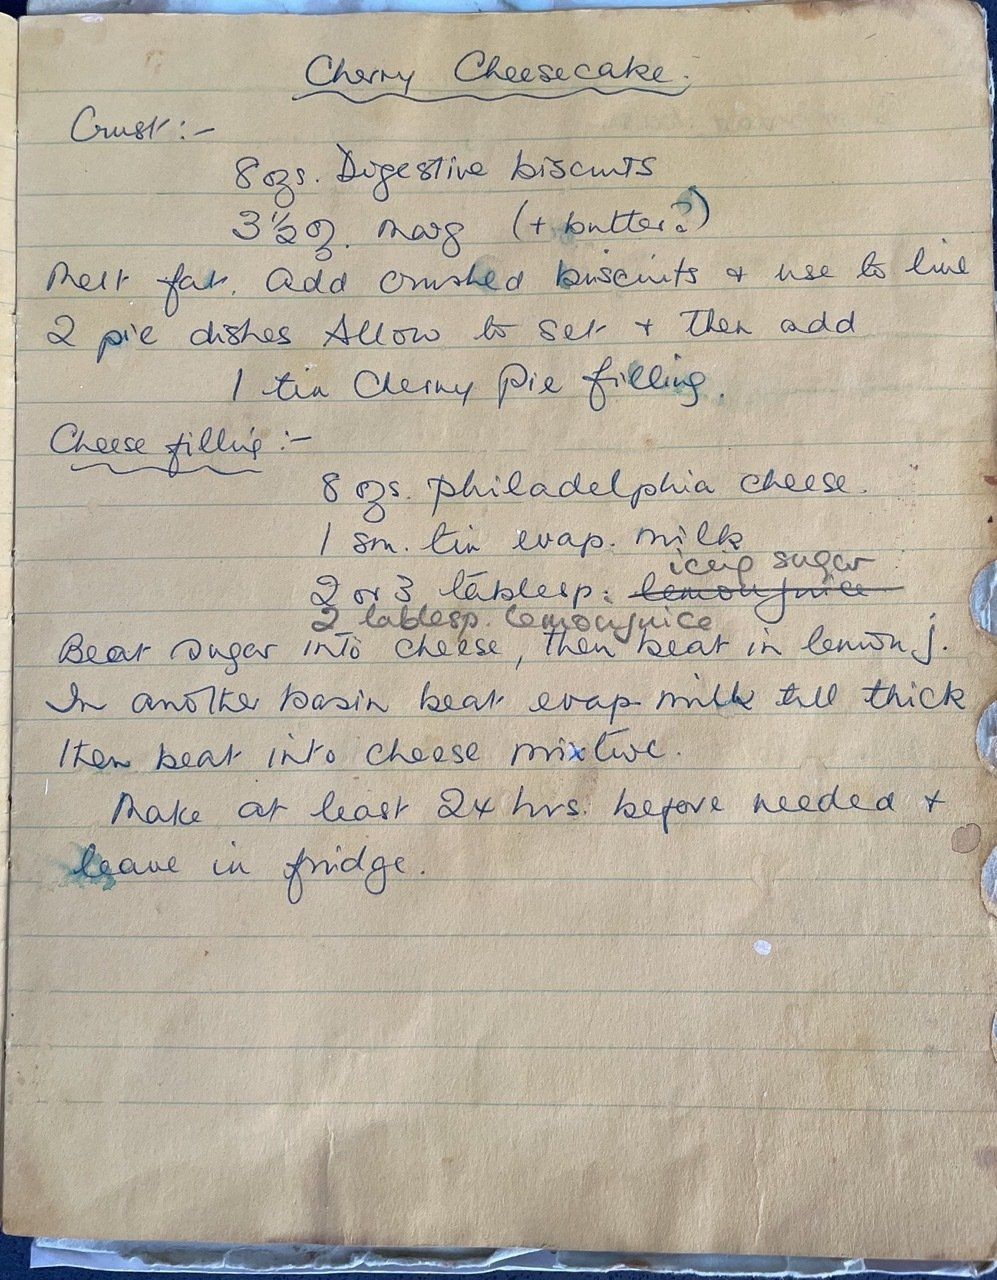 Cherry Cheesecake.
Crust:-
8 ozs. Digestive biscuits
3½ oz. marg (+ butter?)
Melt fat. Add crushed biscuits + use to line
2 pie dishes Allow to set + then add
1 tin Cherry Pie filling.
Cheese filling:-
8 ozs. philadelphia cheese.
1 sm. tin evap. milk
icing sugar
2 or 3 tablesp. lemon juice
2 tablesp. lemon juice
Beat sugar into cheese, then beat in lemon j.
In another basin beat evap milk till thick
then beat into cheese mixture.
Make at least 24 hrs. before needed +
leave in fridge.